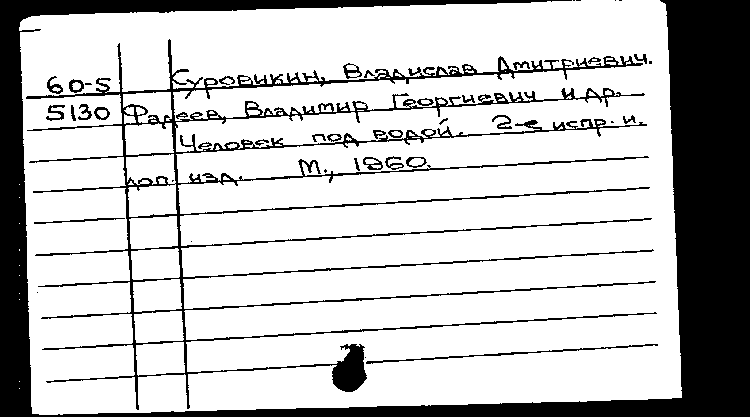 60-5 Суровикин, Владислав Дмитриевич.
5130 Фадеев, Владимир Георгиевич и др.
Человек под водой. 2-е испр. и.
доп. изд. М., 1960.